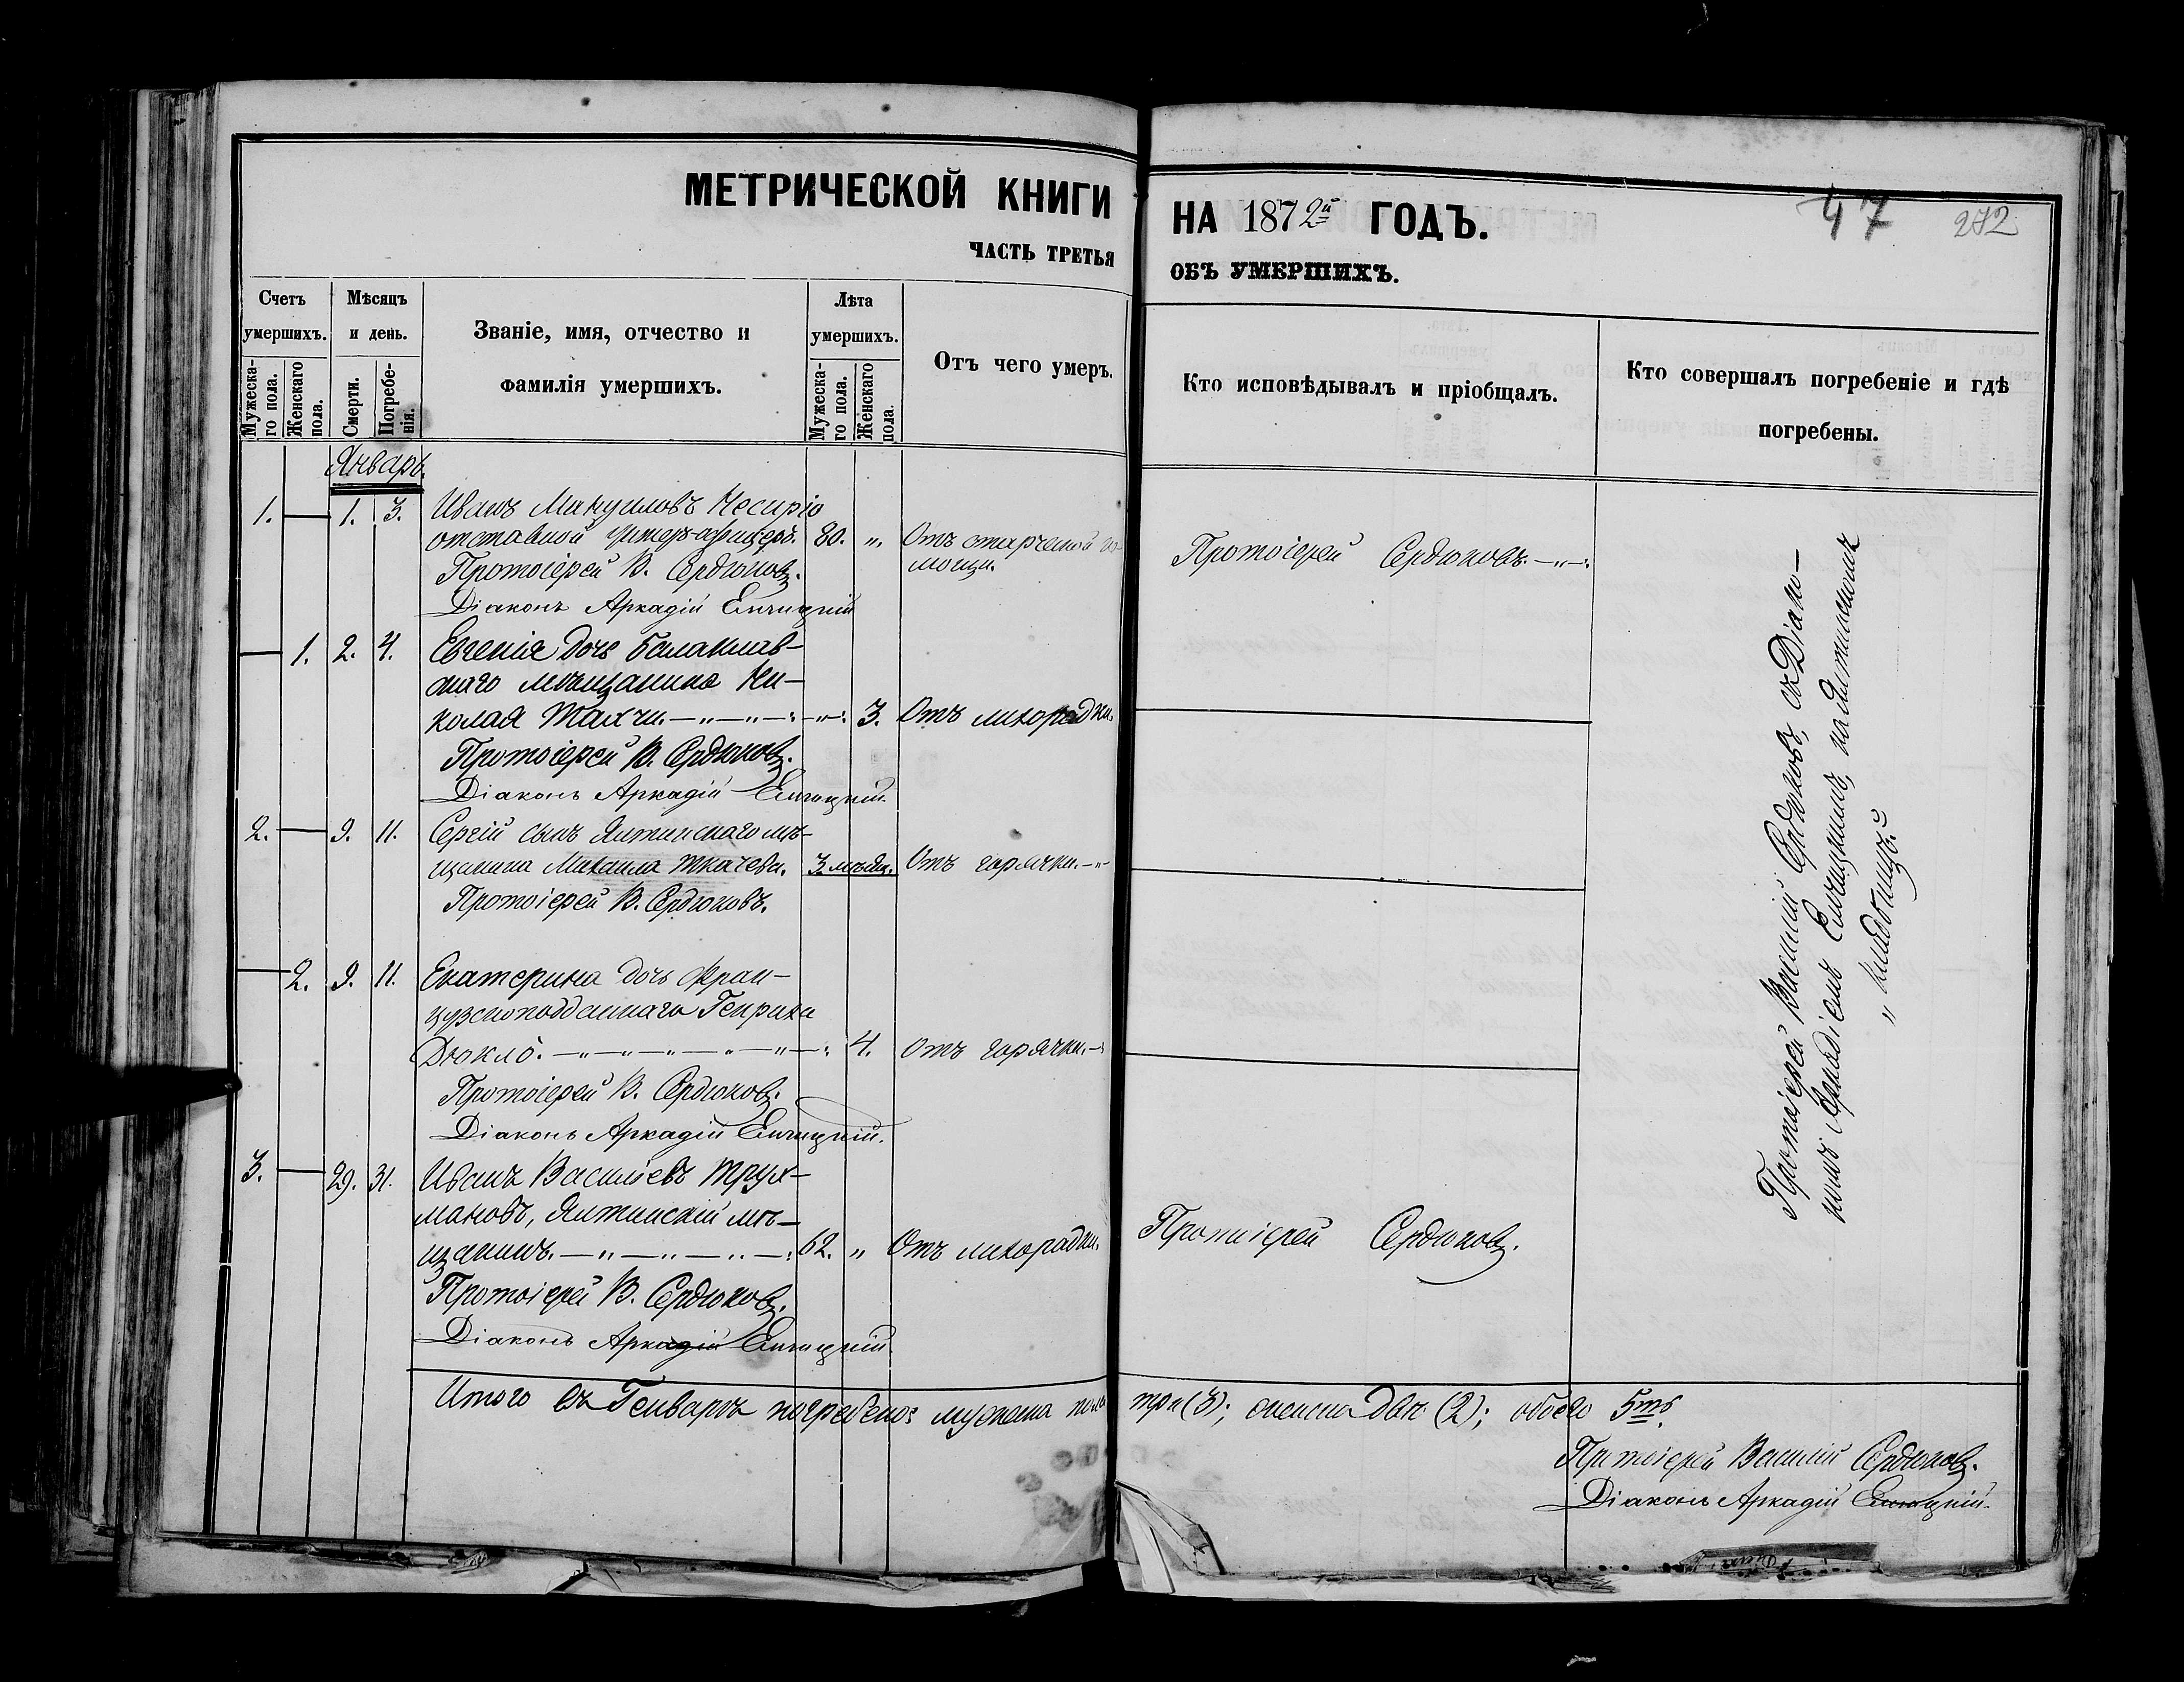 МЕТРИЧЕСКОЙ КНИГИ
ЧАСТЬ ТРЕТЬЯ
НА 1872й ГОДЪ.
ОБЪ УМЕРШИХЪ.
47
272
Счетъ умершихъ.
Мужеска-го пола.
Женскаго пола.
Мѣсяцъ и день.
Смерти.
Погребе-нія.
Званіе, имя, отчество и фамилія умершихъ.
Лѣта умершихъ.
Мужеска-го пола.
Женскаго пола.
Отъ чего умеръ.
Кто исповѣдывалъ и пріобщалъ.
Кто совершалъ погребеніе и гдѣ погребены.
Январь.
1. — 1. 3. Иванъ
отставной унтеръ-офицеръ. 80. „ Отъ старческой
Протоіерей В. Сердюковъ. мощи.
Діаконъ Аркадій
Протоіерей Сердюковъ. —„—
— 1. 2. 4. Евгенія дочь Балаклав-
скаго мѣщанина Ни-
колая —„—„—: —„—: 3. Отъ лихорадки.
Протоіерей В. Сердюковъ.
Діаконъ Аркадій
2. — 9. 11. Сергій сынъ Ялтинскаго мѣ-
щанина Михаила Ткачева. 3 мѣсяц. Отъ горячки. —„—
Протоіерей В. Сердюковъ.
— 2. 9. 11. Екатерина дочь Фран-
цузскоподданнаго Генриха
Дюкло. —„—„—„—„—„—: 4. Отъ горячки. —
Протоіерей В. Сердюковъ.
Діаконъ Аркадій
3. — 29. 31. Иванъ Васильевъ Трух-
мановъ, Ялтинскій мѣ-
щанинъ. —„—„—„—: 62. „ Отъ лихорадки.
Протоіерей В. Сердюковъ.
Діаконъ Аркадій
Протоіерей Сердюковъ.
Протоіерей Василій Сердюковъ, съ Діако-
номъ Аркадіемъ на Ялтинскомъ
„ кладбищѣ.
Итого въ Генварѣ погребено: мужска пола три (3); женска двѣ (2); обоего 5ть.
Протоіерей Василій Сердюковъ.
Діаконъ Аркадій